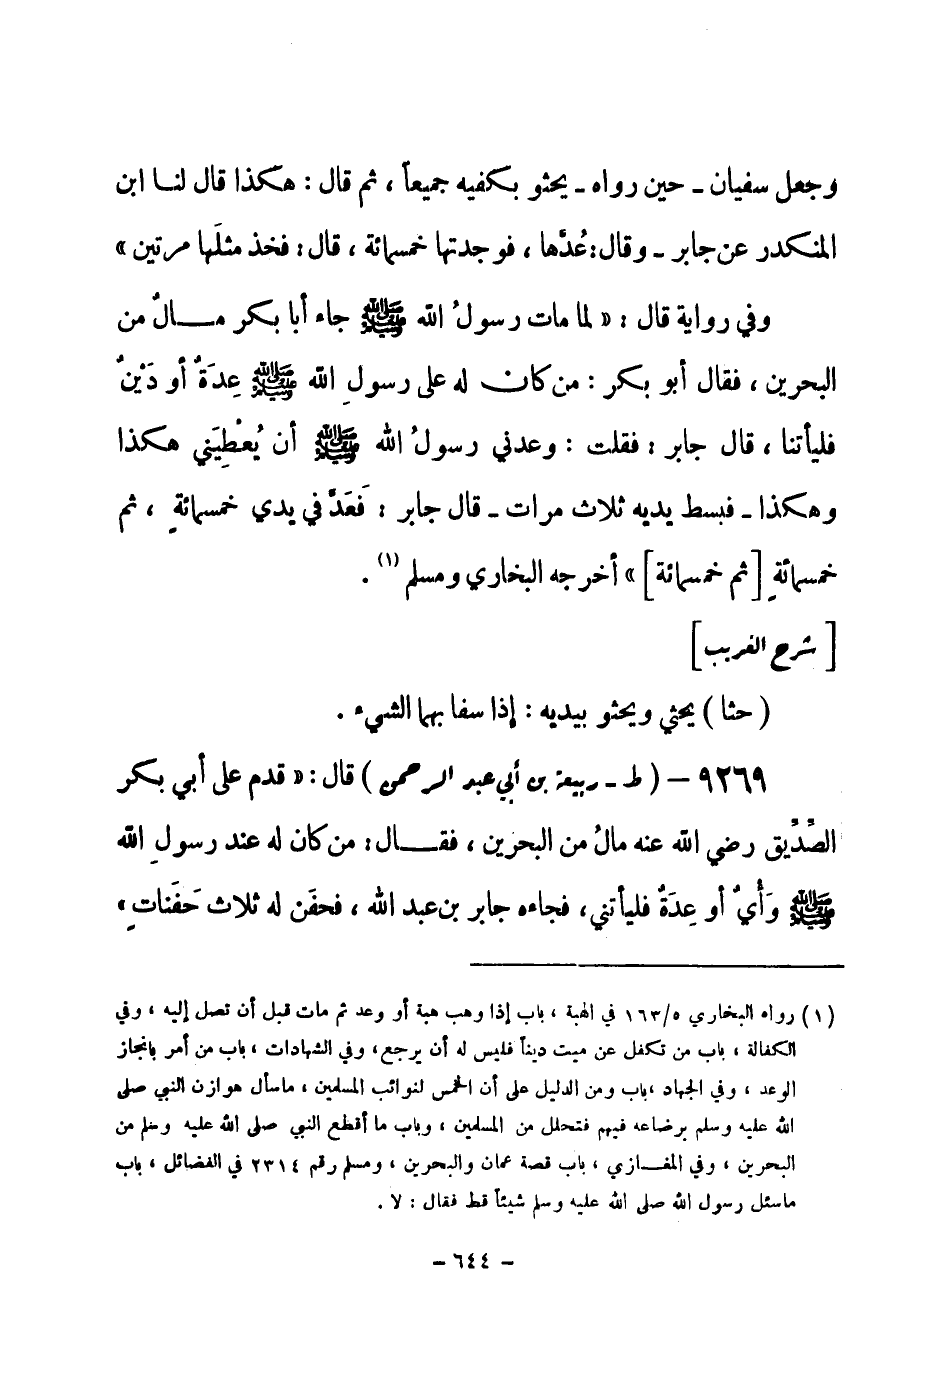 وجعل سفيان ـ حين رواه ـ يحثو بكفيه جميعاً ، ثم قال : هكذا قال لنا ابن
المنكدر عن جابر ـ وقال : عُدَّها ، فوجدتها خمسمائة ، قال : فخذ مثلَها مرتين »
وفي رواية قال : « لما مات رسولُ الله ﷺ جاء أبا بكر مالٌ من
البحرين ، فقال أبو بكر : من كان له على رسولِ الله ﷺ عِدَةٌ أو دَيْنٌ
فليأتنا ، قال جابر : فقلت : وعدني رسولُ الله ﷺ أن يُعْطِيَني هكذا
وهكذا ـ فبسط يديه ثلاث مرات ـ قال جابر : فَعَدَّ في يدي خمسمائةٍ ، ثم
خمسمائةٍ [ ثم خمسمائة ] » أخرجه البخاري ومسلم (١) .
[ شرح الغريب ]
( حثا ) يحثي ويحثو بيديه : إذا سفا بهما الشيء .
٩٢٦٩ – ( ط ـ ربيعة بن أبي عبد الرحمن ) قال : « قدم على أبي بكر
الصِّدِّيق رضي الله عنه مالٌ من البحرين ، فقال : من كان له عند رسولِ الله
ﷺ وَأْيٌ أو عِدَةٌ فليأتني ، فجاءه جابر بن عبد الله ، فحفَن له ثلاث حَفَناتٍ »
(١) رواه البخاري ٥/ ١٦٣ في الهبة ، باب إذا وهب هبة أو وعد ثم مات قبل أن تصل إليه ، وفي
الكفالة ، باب من تكفل عن ميت ديناً فليس له أن يرجع ، وفي الشهادات ، باب من أمر بانجاز
الوعد ، وفي الجهاد ، باب ومن الدليل على أن الخمس لنوائب المسلمين ، ماسأل هوازن النبي صلى
الله عليه وسلم برضاعه فيهم فتحلل من المسلمين ، وباب ما أقطع النبي صلى الله عليه وسلم من
البحرين ، وفي المغازي ، باب قصة عمان والبحرين ، ومسلم رقم ٢٣١٤ في الفضائل ، باب
ماسئل رسول الله صلى الله عليه وسلم شيئاً قط فقال : لا .
– ٦٤٤ –